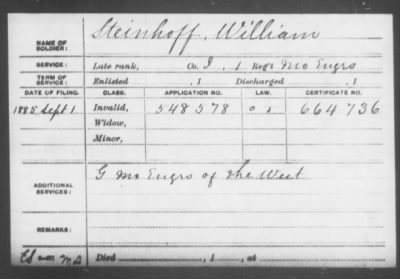 NAME OF SOLDIER: Steinhoff, William
SERVICE: Late rank, Co. I, 1 Reg't Mo Engrs
TERM OF SERVICE: Enlisted , 1 Discharged , 1
DATE OF FILING. CLASS. APPLICATION NO. LAW. CERTIFICATE NO.
1885 Sept 1 Invalid, 548578 664736
Widow,
Minor,
ADDITIONAL SERVICES: G Mo Engrs of the West
REMARKS:
Died , 1 , at